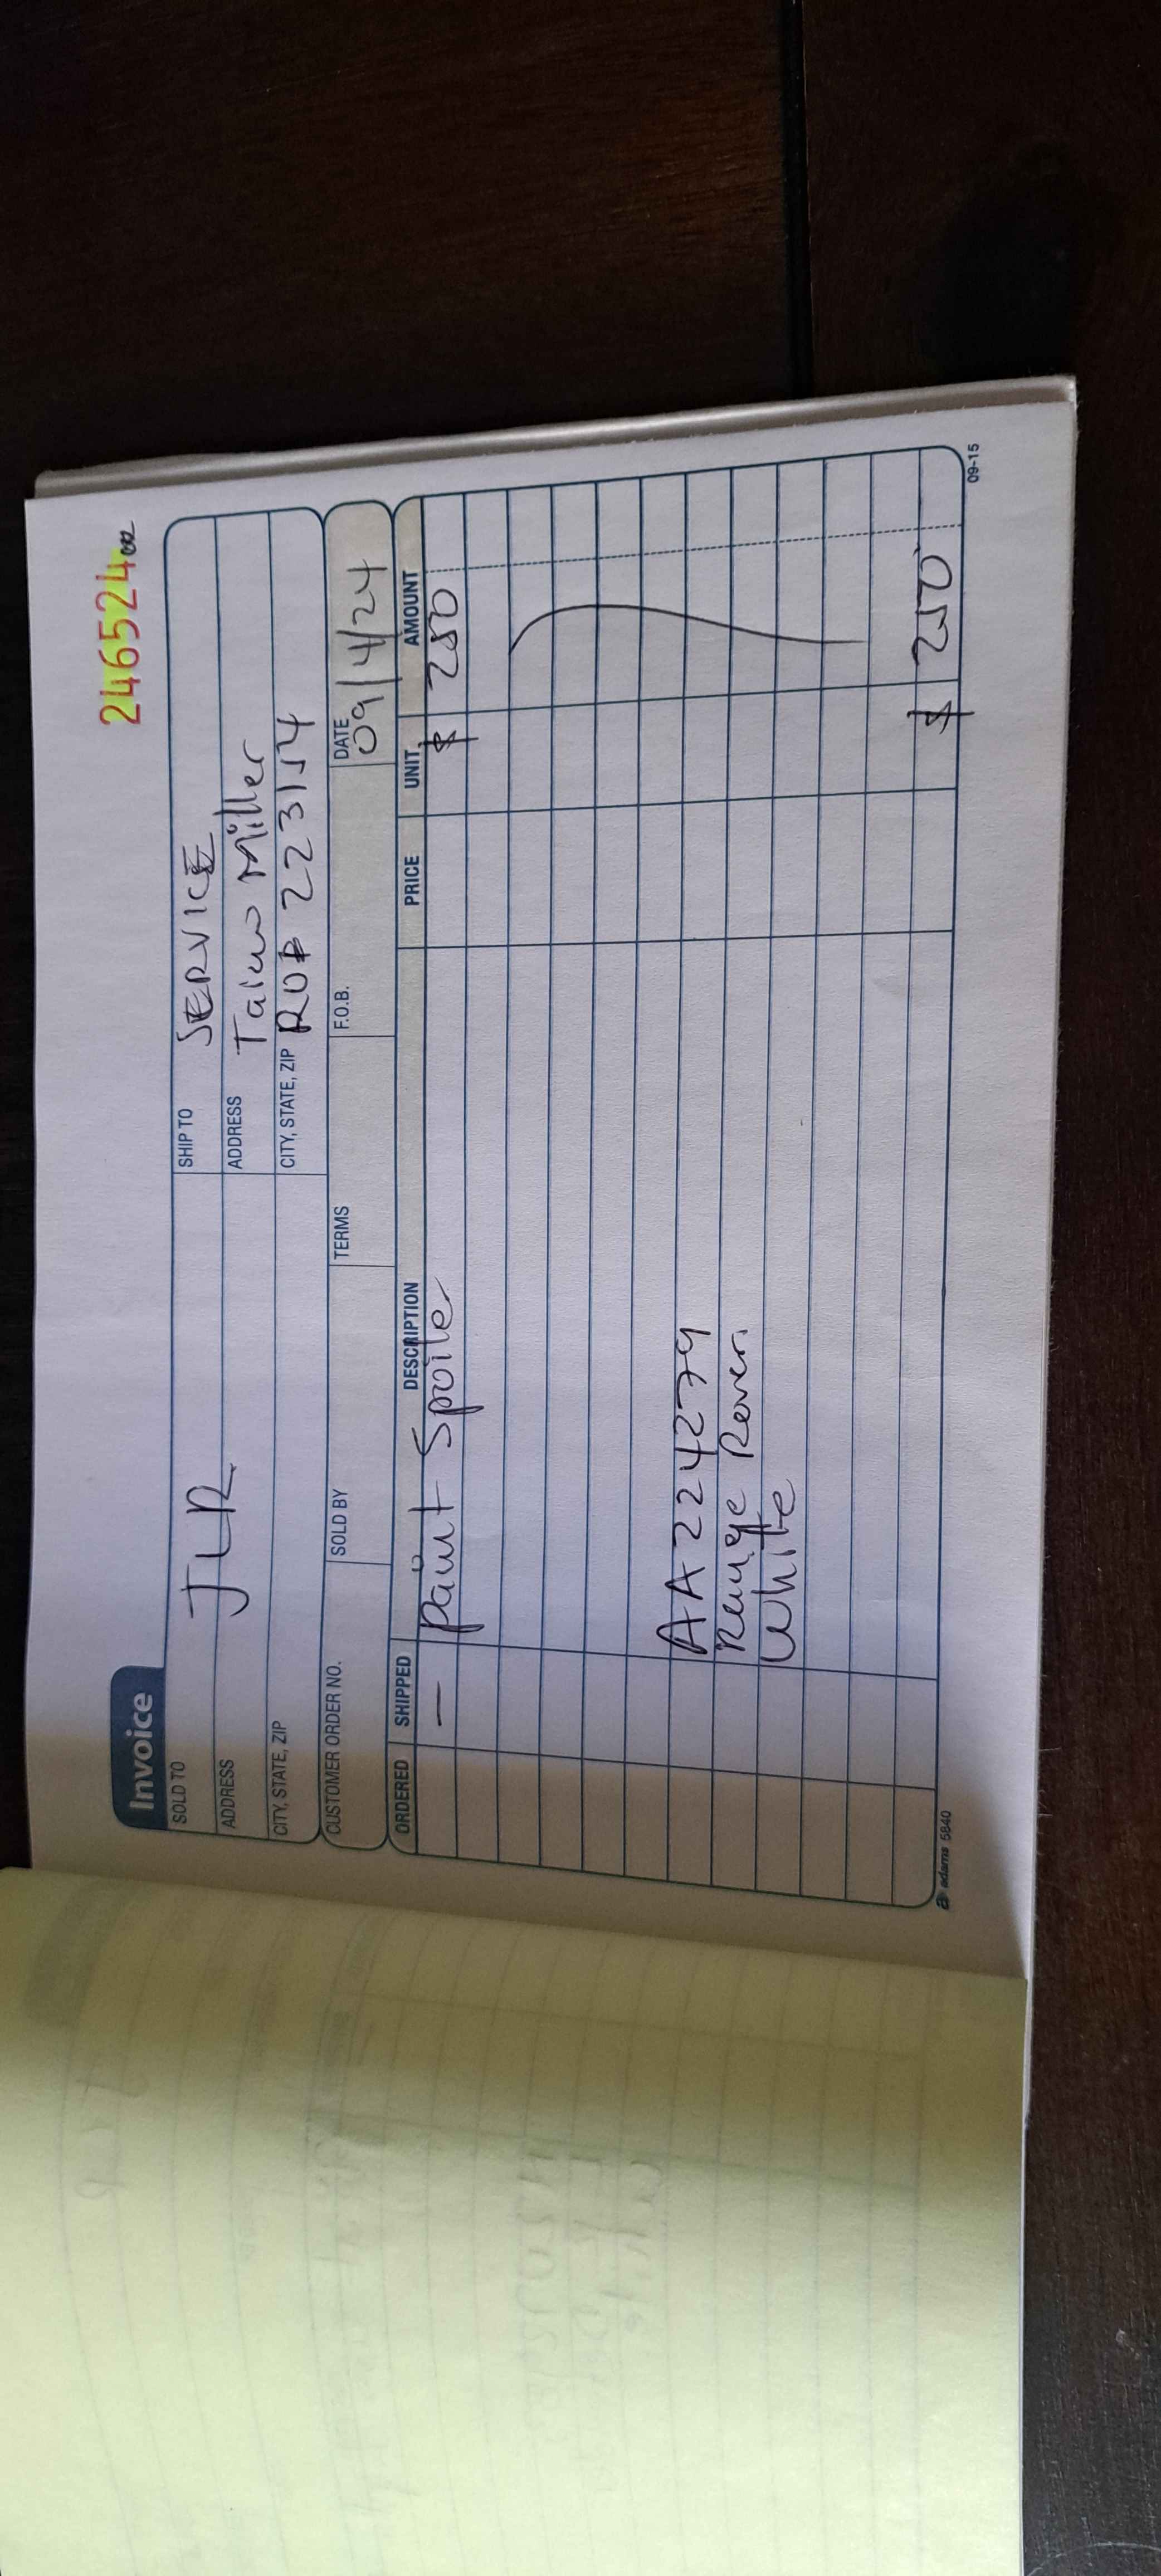 246524 002
Invoice
SOLD TO JLR
SHIP TO SERVICE
ADDRESS
ADDRESS Miller
CITY, STATE, ZIP
CITY, STATE, ZIP RO# 223154
CUSTOMER ORDER NO. SOLD BY TERMS F.O.B. DATE 09/4/24
ORDERED SHIPPED DESCRIPTION PRICE UNIT AMOUNT
— Paint Spoiler $ 250
AA224279
Range Rover
White
$ 250
adams 5840
09-15